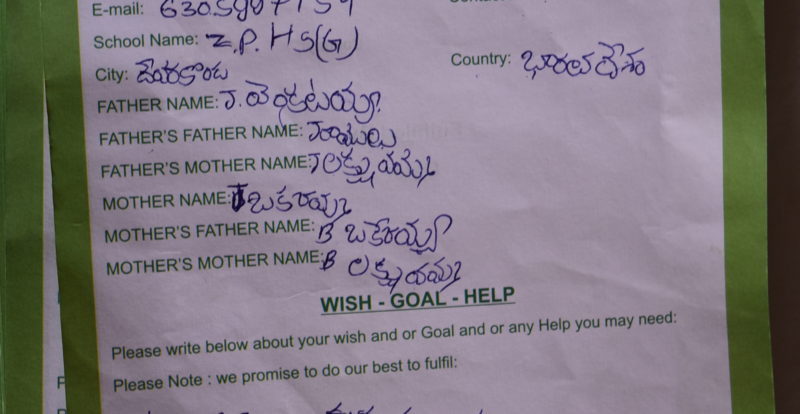 E-mail:
School Name: Z.P. HS(G)
City: దేవరకొండ Country: భారతదేశం
FATHER NAME: J. వెంకటయ్య
FATHER'S FATHER NAME: J రాములు
FATHER'S MOTHER NAME: J లక్ష్మమ్మ
MOTHER NAME: J
MOTHER'S FATHER NAME: B
MOTHER'S MOTHER NAME: B లక్ష్మమ్మ
WISH - GOAL - HELP
Please write below about your wish and or Goal and or any Help you may need:
Please Note : we promise to do our best to fulfil: